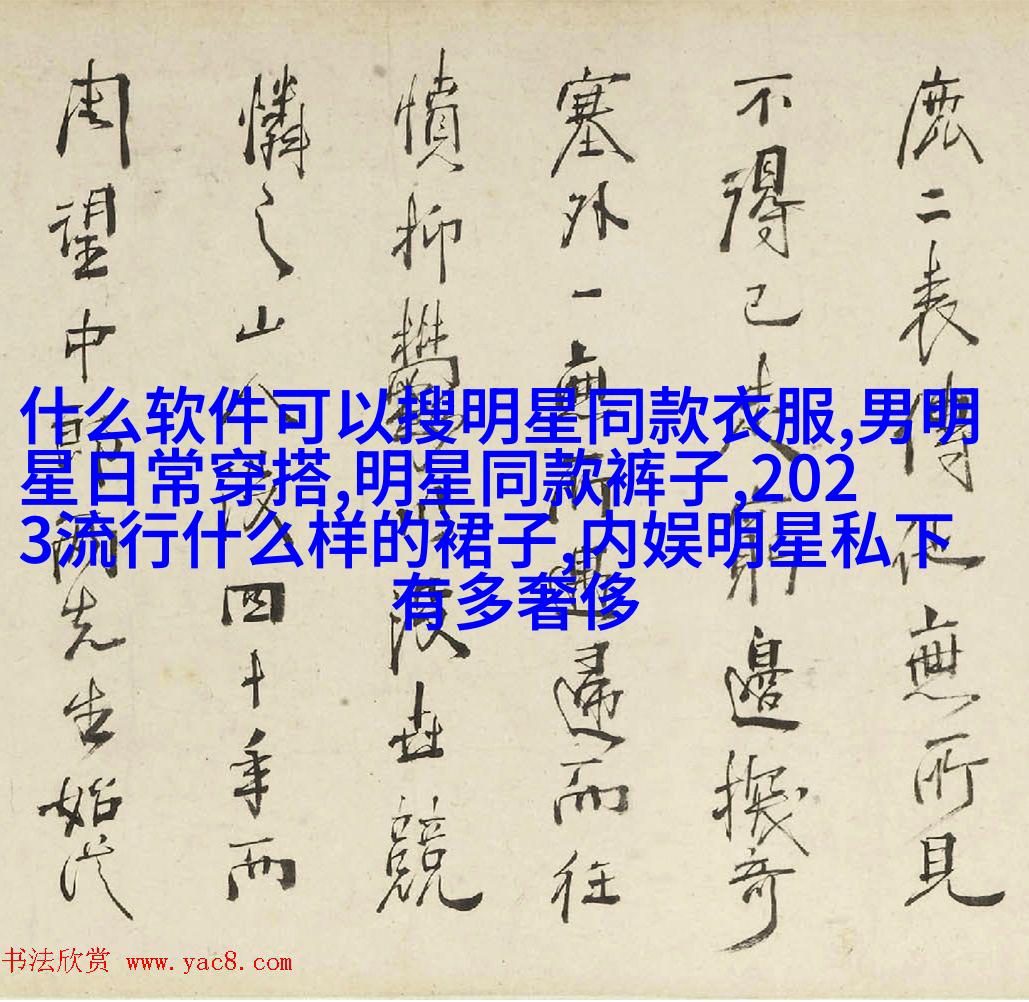 不得已身邊探奇
塞外一無所遇歸而往
憤抑鬱世競
憐之山人後四十年而
周望中郎先生始從
什么软件可以搜明星同款衣服,男明
星日常穿搭,明星同款裤子,202
3流行什么样的裙子,内娱明星私下
有多奢侈
书法欣赏 www.yac8.com